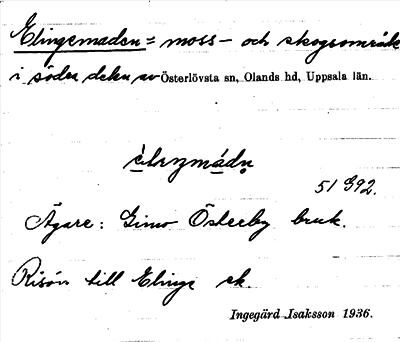 Elingemaden = moss- och skogsområde
i södra delen av Österlövsta sn, Olands hd, Uppsala län.
51 G92.
Ägare: Gimo Österby bruk.
Risön till Elinge sk.
Ingegärd Isaksson 1936.